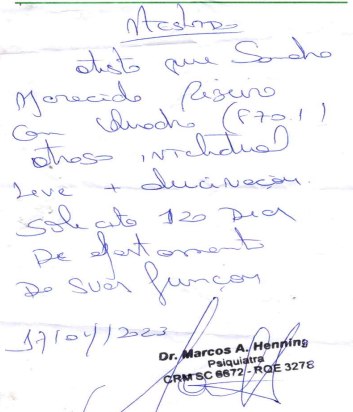 Atestado
atesto que Sandro
Aparecido Ribeiro
com quadro (F70.1)
atraso intelectual
leve +
solicito 120 Dias
De afastamento
De suas funções
17/04/2023
Dr. Marcos A. Henning
Psiquiatra
CRM SC 6672 - RQE 3278